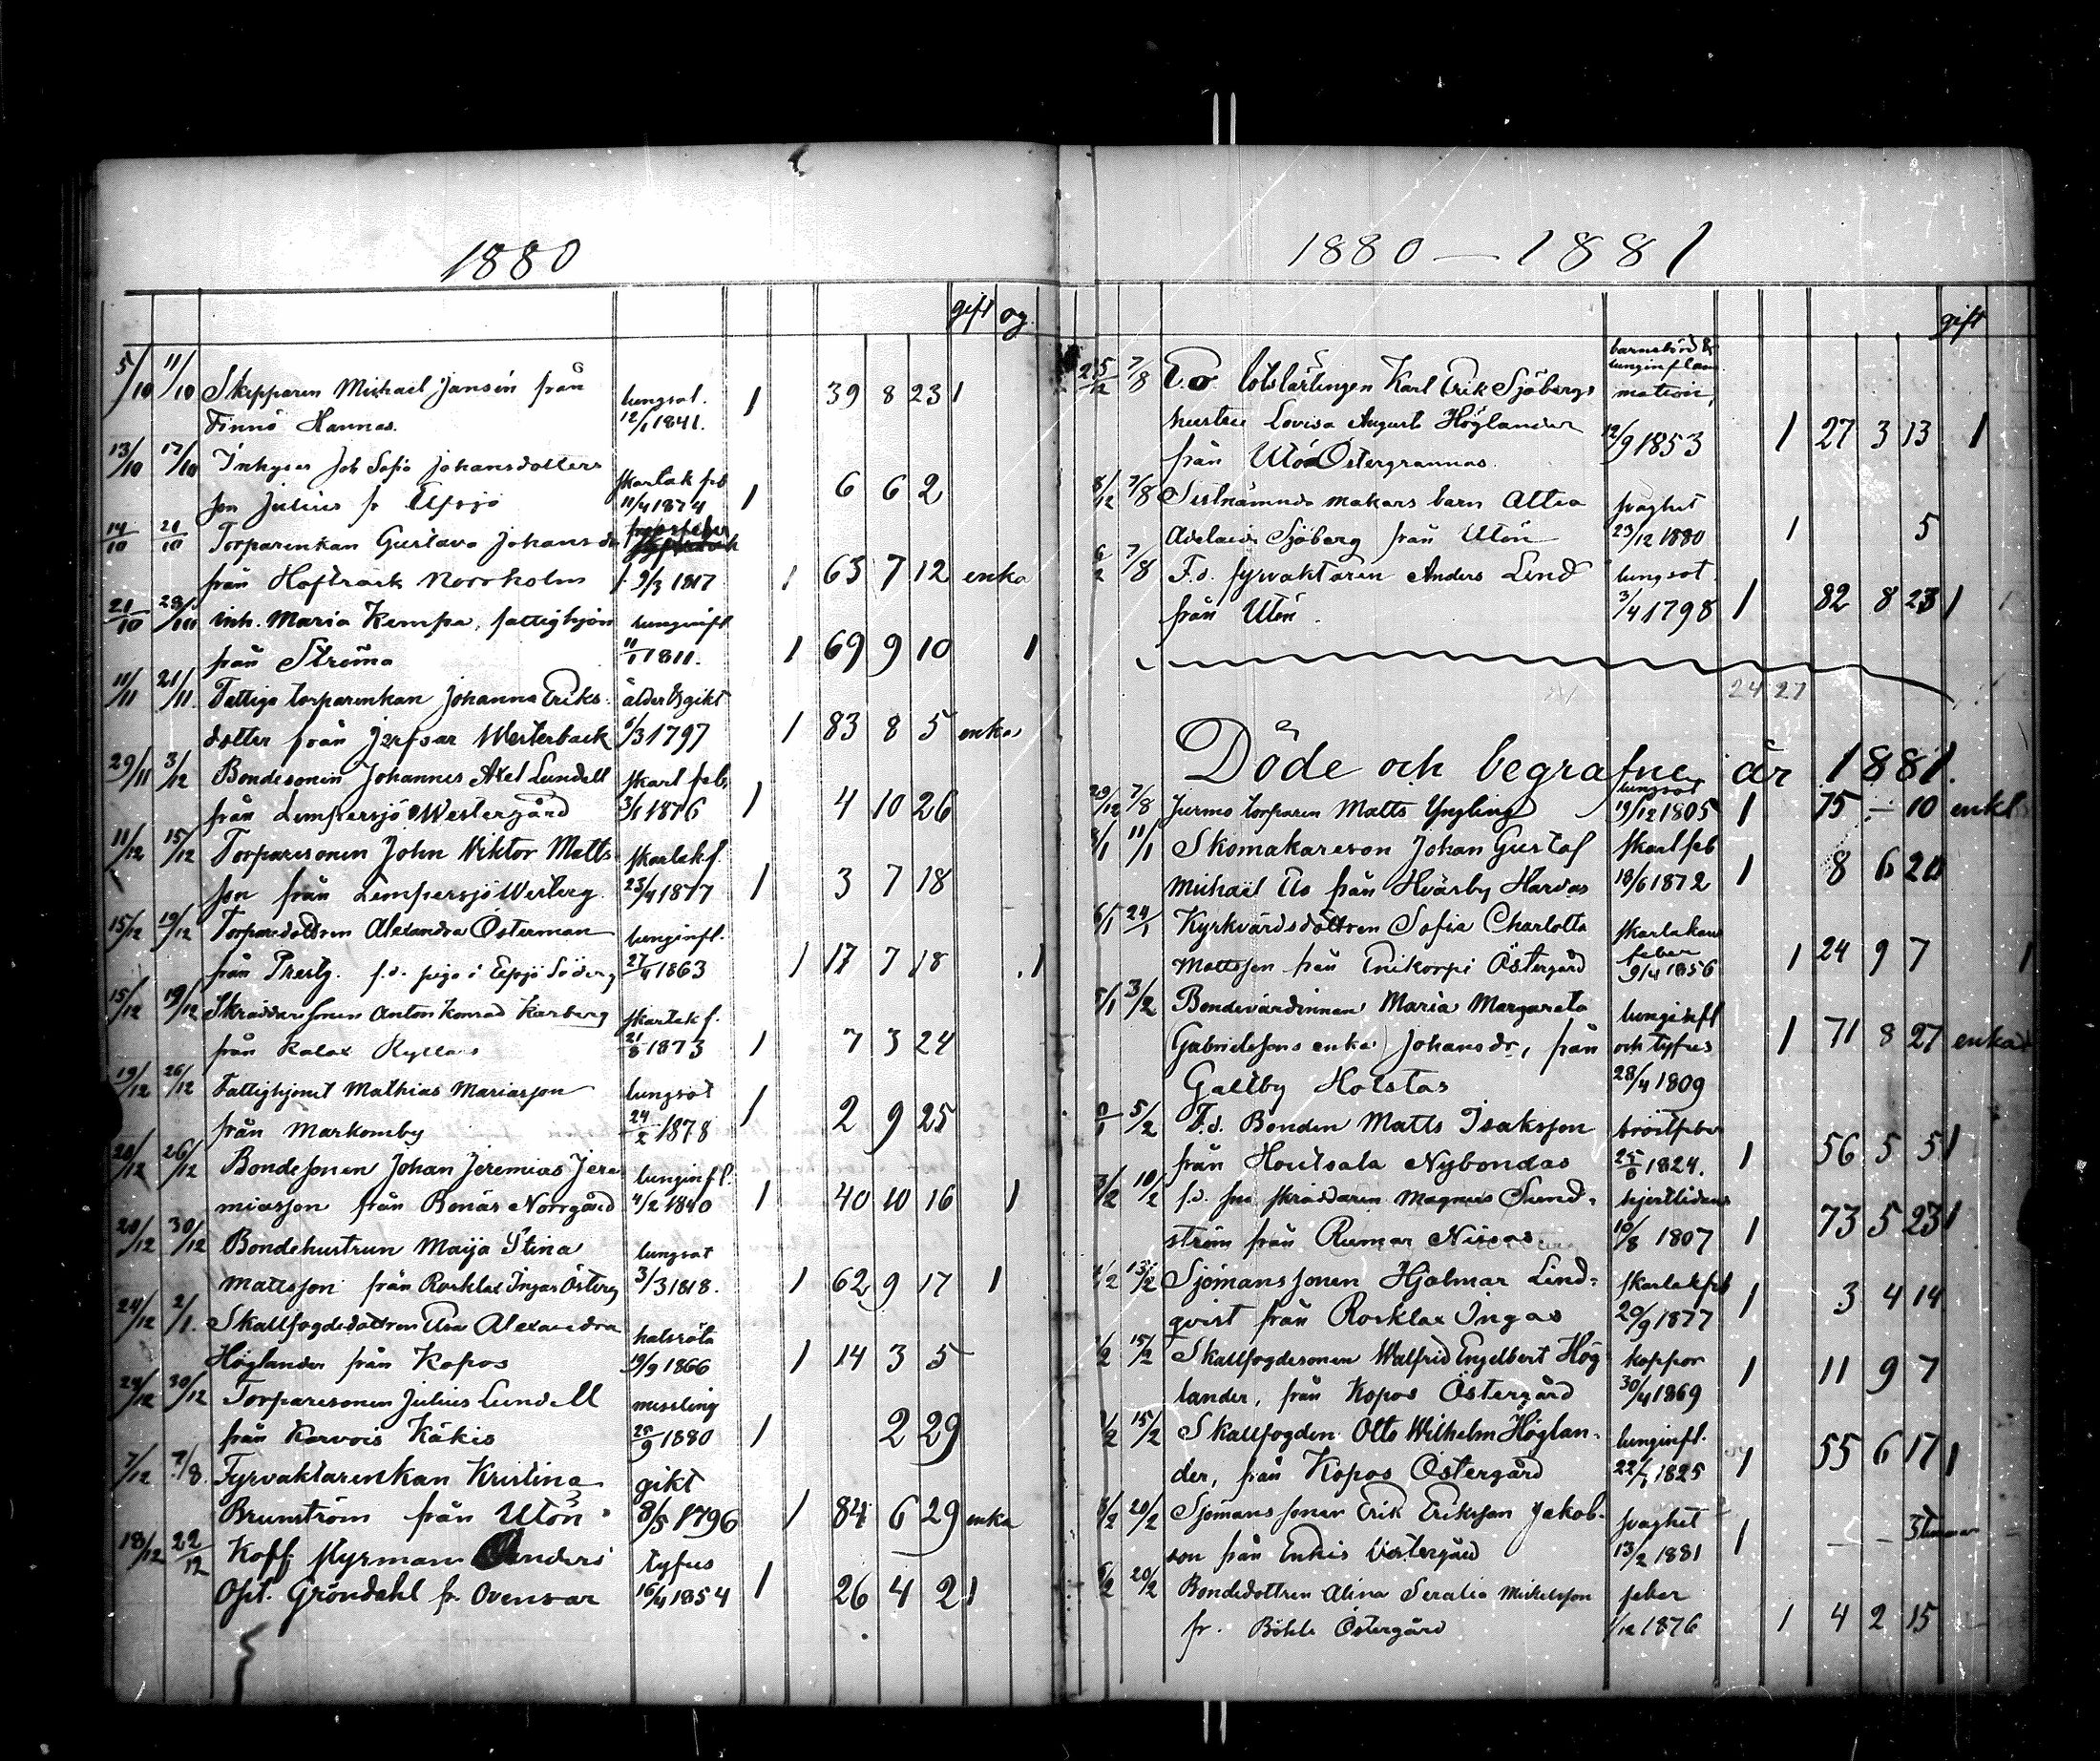 1880
gift og.
5/10 11/10 Skepparen Michael Jansén från lungsot. 1 39 8 23 1
Finnö Hannas. 12/1 1841.
13/10 17/10 Inhyses Joh Sofia Johansdotters skarlak feb
son Julius fr 11/4 1874 1 6 6 2
14/10 21/10 Torparenkan Gustava Johansdr
från Norrholm 9/3 1817 1 63 7 12 enka
21/10 28/10 inh. Maria Kempa, fattighjon lunginfl
från Strömа 11/1 1811. 1 69 9 10 1
11/11 21/11. Fattiga torparenkan Johanna Eriks- ålder & gikt
dotter från Jerfsar Westerback 6/3 1797 1 83 8 5 enka
29/11 3/12 Bondesonen Johannes Axel Lundell skarl feb.
från Lempersjö Westergård 3/1 1876 1 4 10 26
11/12 15/12 Torparesonen John Viktor Matts- skarlak f.
son från Lempersjö Westerg. 23/4 1877 1 3 7 18
15/12 19/12 Torparedottren Alexandra Österman lunginfl.
från Prestg. f.d. piga i Söderg 27/4 1863 1 17 7 18 1
15/12 19/12 Skräddaresonen Anton Konrad Karberg skarlak f.
från Kalax 21/8 1873 1 7 3 24
19/12 26/12 Fattighjonet Mathias Mariasson lungsot
från Markomby 24/2 1878 1 2 9 25
20/12 26/12 Bondesonen Johan Jeremias Jere- lunginfl.
miasson från Benäs Norrgård 4/2 1840 1 40 10 16 1
20/12 30/12 Bondehustrun Maija Stina lungsot
Mattsson från Rosklax Ingas Österg 3/3 1818. 1 62 9 17 1
24/12 2/1. Skallfogdedottren Alexandra halsröta
Höglander från Kopos 19/9 1866 1 14 3 5
24/12 30/12 Torparesonen Julius Lundell messling
från Korvois Käkis 25/9 1880 1 2 29
7/12 7/8. Fyrvaktarenkan Kristina gikt
Brunström från Utön 8/5 1796 1 84 6 29 enka
18/12 22/12 Koff. styrman Anders tyfus
Gröndahl fr Ovensor 16/4 1854 1 26 4 2 1
1880 — 1881
gift
25/12 7/8 lotslärlingen Karl Erik Sjöbergs barnsbörd & lunginflam-
mation,
hustru Lovisa August Höglander 12/9 1853 1 27 3 13 1
från Utö Östergrannas.
8/12 7/8 Sistnämnda makars barn Altea svaghet
Adelaide Sjöberg från Utön 23/12 1880 1 5
7/8 F.d. fyrvaktaren Anders Lind lungsot
från Utön. 3/4 1798 1 82 8 23 1
24 27
Döde och begrafne år 1881.
29/12 7/8 Jurmo torparen Matts Yngling lungsot
19/12 1805 1 75 — 10 enkl
8/1 11/1 Skomakareson Johan Gustaf skarl feb
Michaël från Hvärby Harvas 18/6 1872 1 8 6 20
24/1 Kyrkvärdsdottren Sofia Charlotta skarlakans
feber
Mattsson från Enikorpi Östergård 9/4 1856 1 24 9 7 1
3/2 Bondevärdinnan Maria Margareta lunginfl
Gabrielssons enka Johansdr, från och tyfus 1 71 8 27 enka
Galtby Holstas 28/4 1809
5/2 F.d. Bonden Matts Isaksson bröstfeber
från Houtsala Nybondas 25/8 1824. 1 56 5 5 1
3/2 10/2 f.d. skräddaren Magnus Sund- hjertlidan
ström från Rumar Nissas 10/8 1807 1 73 5 23 1
13/2 Sjömanssonen Hjalmar Lind- skarlak feb
qvist från Rosklax Ingas 20/9 1877 1 3 4 14
15/2 Skallfogdesonen Walfrid Engelbert Hög- koppor
lander, från Kopos Östergård 30/4 1869 1 11 9 7
15/2 Skallfogden Otto Wilhelm Höglan- lunginfl.
der, från Kopos Östergård 22/7 1825 1 55 6 17 1
20/2 Sjömanssonen Erik Eriksson Jakob- svaghet
son från Enkis Westergård 13/2 1881 1 — — 3 timmar
20/2 Bondedottren Alina Serafia Mickelsson feber
fr. Böhle Östergård 1/12 1876 1 4 2 15